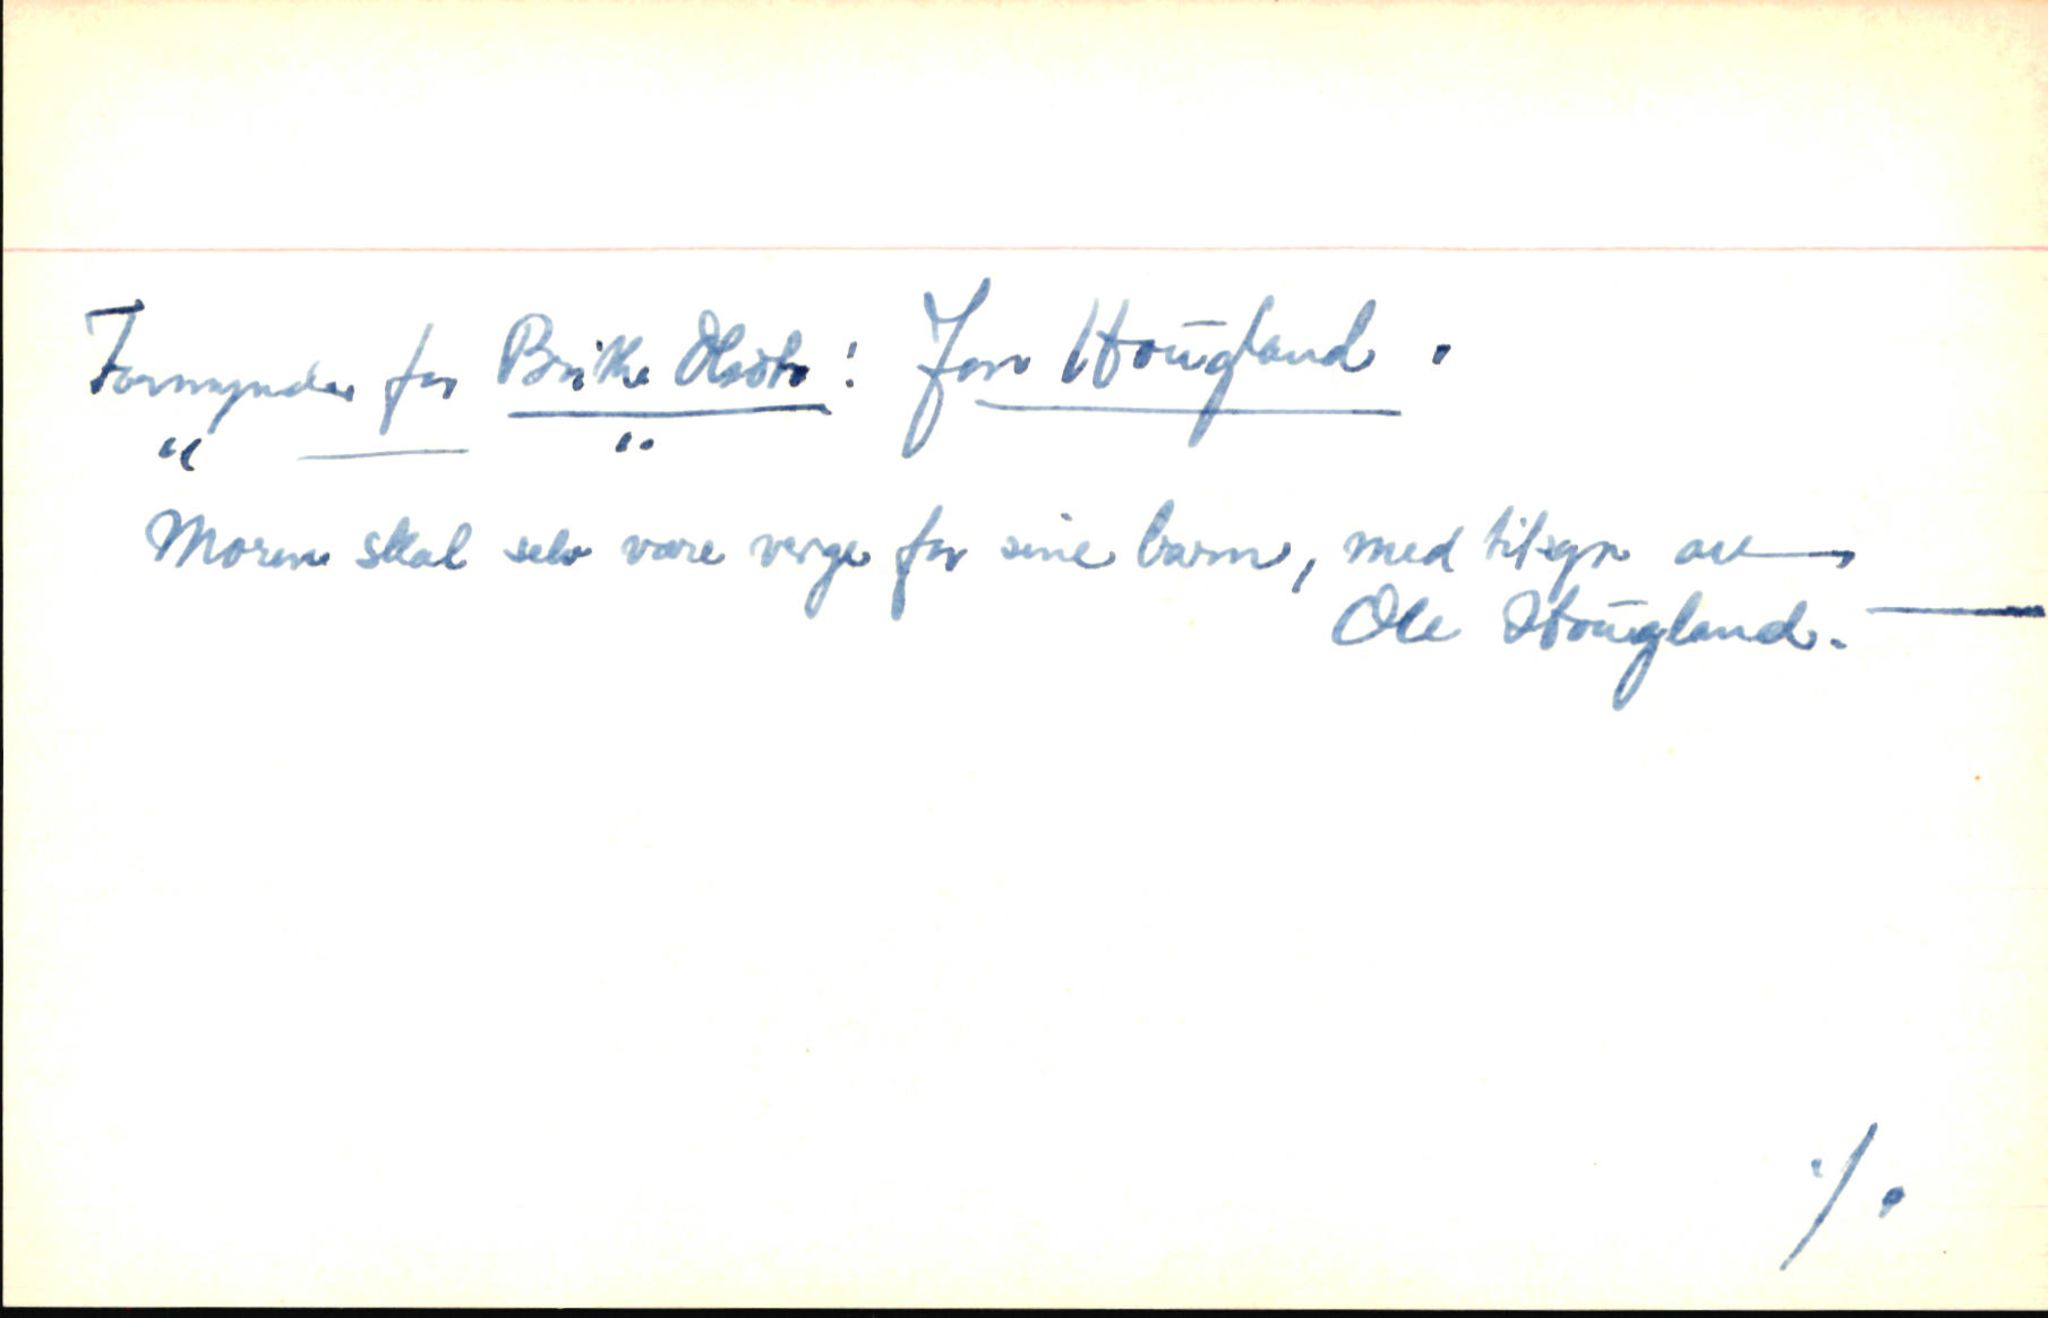 Formynder for Brithe Olsdtr: Jon Hougland.
" — "
Moren skal selv være verge for sine barn, med tilsyn av
Ole Hougland. —
./.